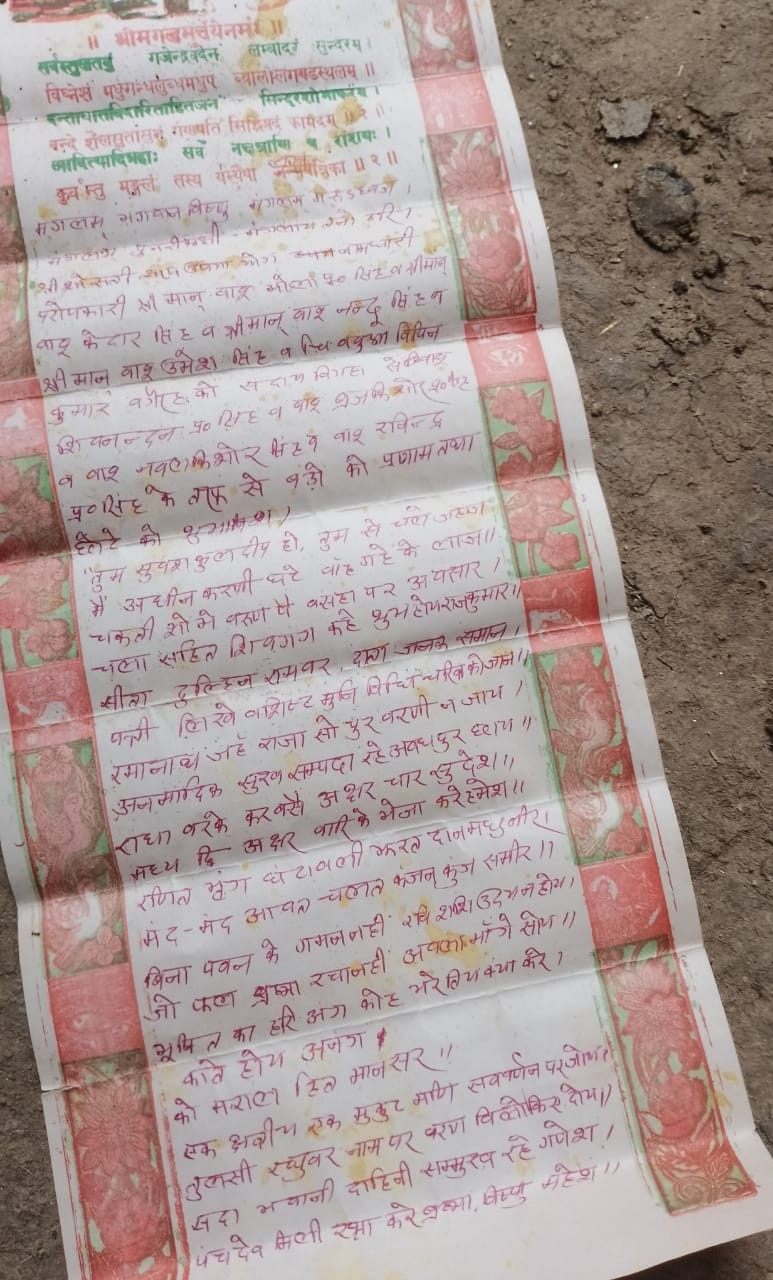 ॥ श्रीमगन्मचयेनमः ॥
सर्वस्तुकतनुं गजेन्द्रवदेन लम्बोदरं सुन्दरम् ।
विघ्नेसं मधुगन्धलुब्धमधुप व्यालोलगण्डस्थलम् ॥
दन्ताघातविदारिताहितजन सिन्दुरशोभाकरं ।
वन्दे शैलसुतासुतं गणपति सिद्धिप्रदं कामदम् ॥ १ ॥
आदित्यादिग्रहाः सर्वे नक्षत्राणि च राशयः ।
कुर्वन्तु मङ्गलं तस्य यस्यैषा पत्रिका ॥ २ ॥
मंगलम् भगवान विष्णु मंगलम गरुडध्वज ।
श्री
परोपकारी श्री मान् बाबू भोला प्र० सिंह व श्रीमान्
बाबू केदार सिंह व श्रीमान् बाबू नन्दू सिंह व
श्री मान बाबू उमेश सिंह व चि बबुआ विपिन
कुमार वगैरह को सदाय बिगहा से बाबू
शिवनन्दन प्र० सिंह व बाबू ब्रजकिशोर प्र० सिंह
व बाबू नवल किशोर सिंह व बाबू रविन्द्र
प्र० सिंह के तरफ से बड़ों को प्रणाम तथा
छोटे को
"तुम सुवंश कुलदीप हो, तुम से चले जहाज
मैं अधीन करणी घटे बाँह गहे के लाज ॥
चकती शोभे वरुण पै बसहा पर असवार ।
चला सहित शिवगण कहे शुभ होय राजकुमार ॥
सीता दुल्हिन रामवर, दाता जनक समान ।
पत्री लिखे वशिष्ट मुनि विधि चरित्र को जान ॥
रमानाथ जहँ राजा सो पुर वरणी न जाय ।
अनमादिक सुख सम्पदा रहे अवधपुर छाय ॥
राधा वरके कर बसै अक्षर चार सुदेश ॥
मध्य द्वि अक्षर वारि के भेजा करे हमेश ॥
रणित भृंग घंटावली झरत दान मधु नीर ।
मंद-मंद आवत चलत कंजन कुंज समीर ॥
बिना पवन के गमन नहीं रवि शशि उदय न होय ।
जो फल ब्रह्मा रचा नहीं अबला माँगे सोय ॥
भूपति का हरि अंग कोह मरे तिय क्या करे ।
काते होय अनंग ।
को मराल हित मानसर ॥
एक क्षत्रीय एक मुकुट मणि सब वर्णन पर जोय ।
तुलसी रघुवर नाम पर वरण विलोकि दोय ॥
सदा भवानी दाहिनी सम्मुख रहे गणेश ।
पंचदेव मिली रक्षा करे ब्रह्मा, विष्णु महेश ॥